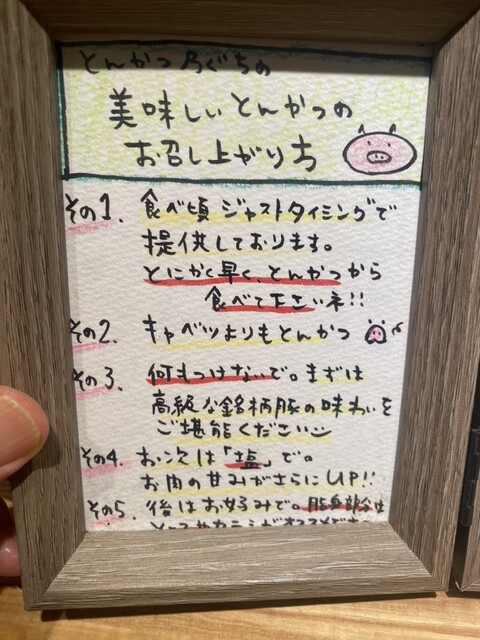 とんかつ乃ぐちの
美味しいとんかつの
お召し上がり方
その1. 食べ頃ジャストタイミングで
提供しております。
とにかく早く、とんかつから
食べて下さいネ!!
その2. キャベツよりもとんかつ
その3. 何もつけないで。まずは
高級な銘柄豚の味わいを
ご堪能ください
その4. お次は「塩」で。
お肉の甘みがさらにUP!!
その5. 後はお好みで。脂身部分は